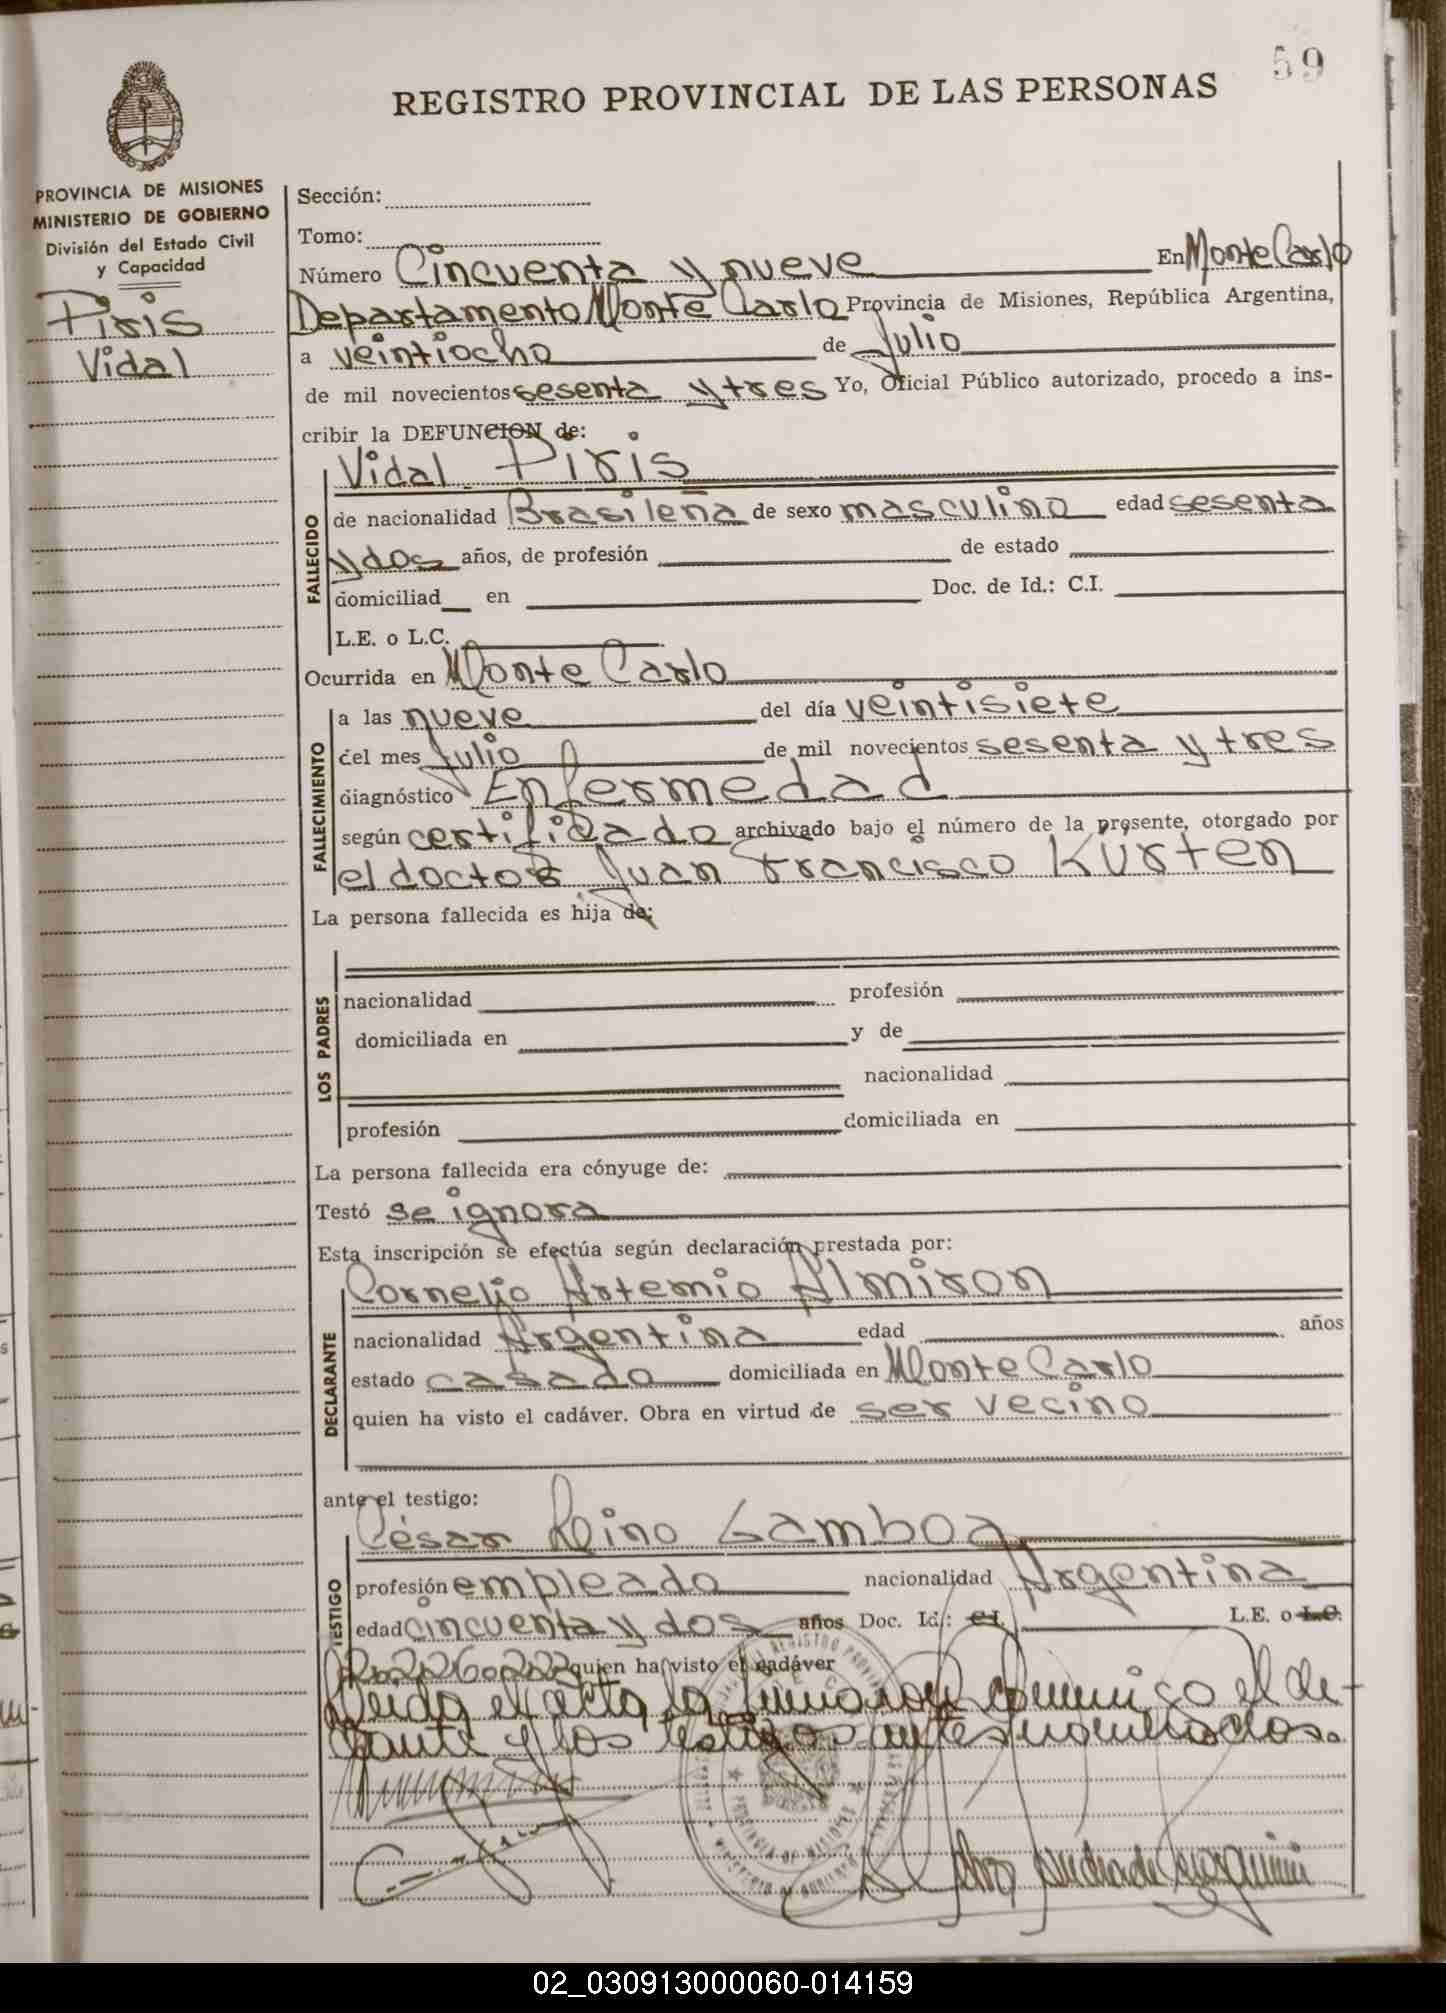 59
REGISTRO PROVINCIAL DE LAS PERSONAS
PROVINCIA DE MISIONES
MINISTERIO DE GOBIERNO
División del Estado Civil
y Capacidad
Piris
Vidal
Sección:
Tomo:
Número Cincuenta y nueve En Monte Carlo
Departamento Monte Carlo Provincia de Misiones, República Argentina,
a veintiocho de Julio
de mil novecientos sesenta y tres Yo, Oficial Público autorizado, procedo a ins-
cribir la DEFUNCION de:
Vidal Piris
FALLECIDO
de nacionalidad Brasileña de sexo masculino edad sesenta
y dos años, de profesión de estado
domiciliad en Doc. de Id.: C.I.
L.E. o L.C.
Ocurrida en Monte Carlo
FALLECIMIENTO
a las nueve del día veintisiete
del mes Julio de mil novecientos sesenta y tres
diagnóstico Enfermedad
según certificado archivado bajo el número de la presente, otorgado por
el doctor Juan Francisco Kursten
La persona fallecida es hija de:
LOS PADRES
nacionalidad profesión
domiciliada en y de
nacionalidad
profesión domiciliada en
La persona fallecida era cónyuge de:
Testó se ignora
Esta inscripción se efectúa según declaración prestada por:
Cornelio Artemio Almiron
DECLARANTE
nacionalidad Argentina edad años
estado casado domiciliada en Monte Carlo
quien ha visto el cadáver. Obra en virtud de ser vecino
ante el testigo:
César Reino Gamboa
TESTIGO
profesión empleado nacionalidad Argentina
edad cincuenta y dos años Doc. Id.: C.I. L.E. o L.C.
quien ha visto el cadáver
Leida el acta la firmaron conmigo el de-
clarante y los testigos antes nombrados.
PROVINCIA DE MISIONES
02_030913000060-014159